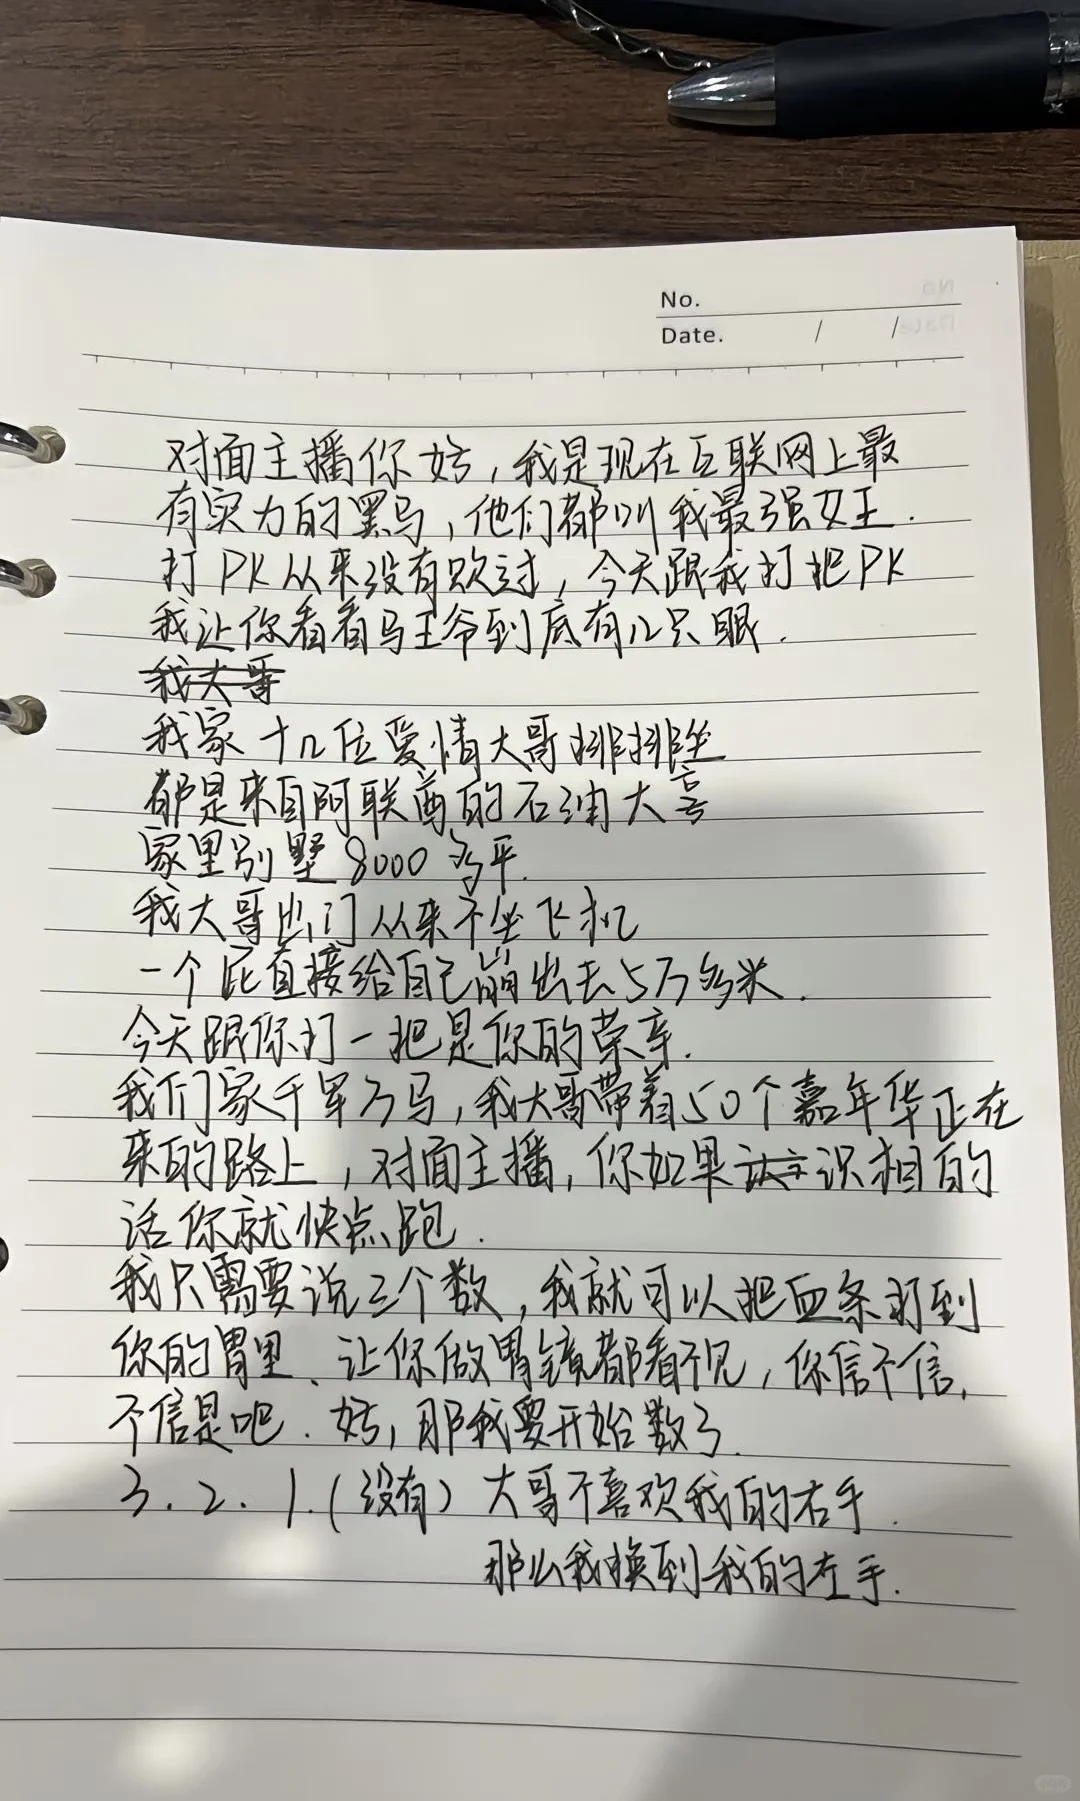 No.
Date. / /
对面主播你好,我是现在互联网上最
有实力的黑马,他们都叫我最强女王.
打PK从来没有败过,今天跟我打把PK
我让你看看马王爷到底有几只眼.
我大哥
我家十几位爱情大哥排排坐
都是来自阿联酋的石油大亨
家里别墅8000多平.
我大哥出门从来不坐飞机
一个屁直接给自己崩出去5万多米.
今天跟你打一把是你的荣幸.
我们家千军万马,我大哥带着50个嘉年华正在
来的路上,对面主播,你如果识相的
话你就快点跑.
我只需要说三个数,我就可以把血条打到
你的胃里、让你做胃镜都看不见,你信不信,
不信是吧.好,那我要开始数了.
3.2.1.(没有)大哥不喜欢我的右手.
那么我换到我的左手.